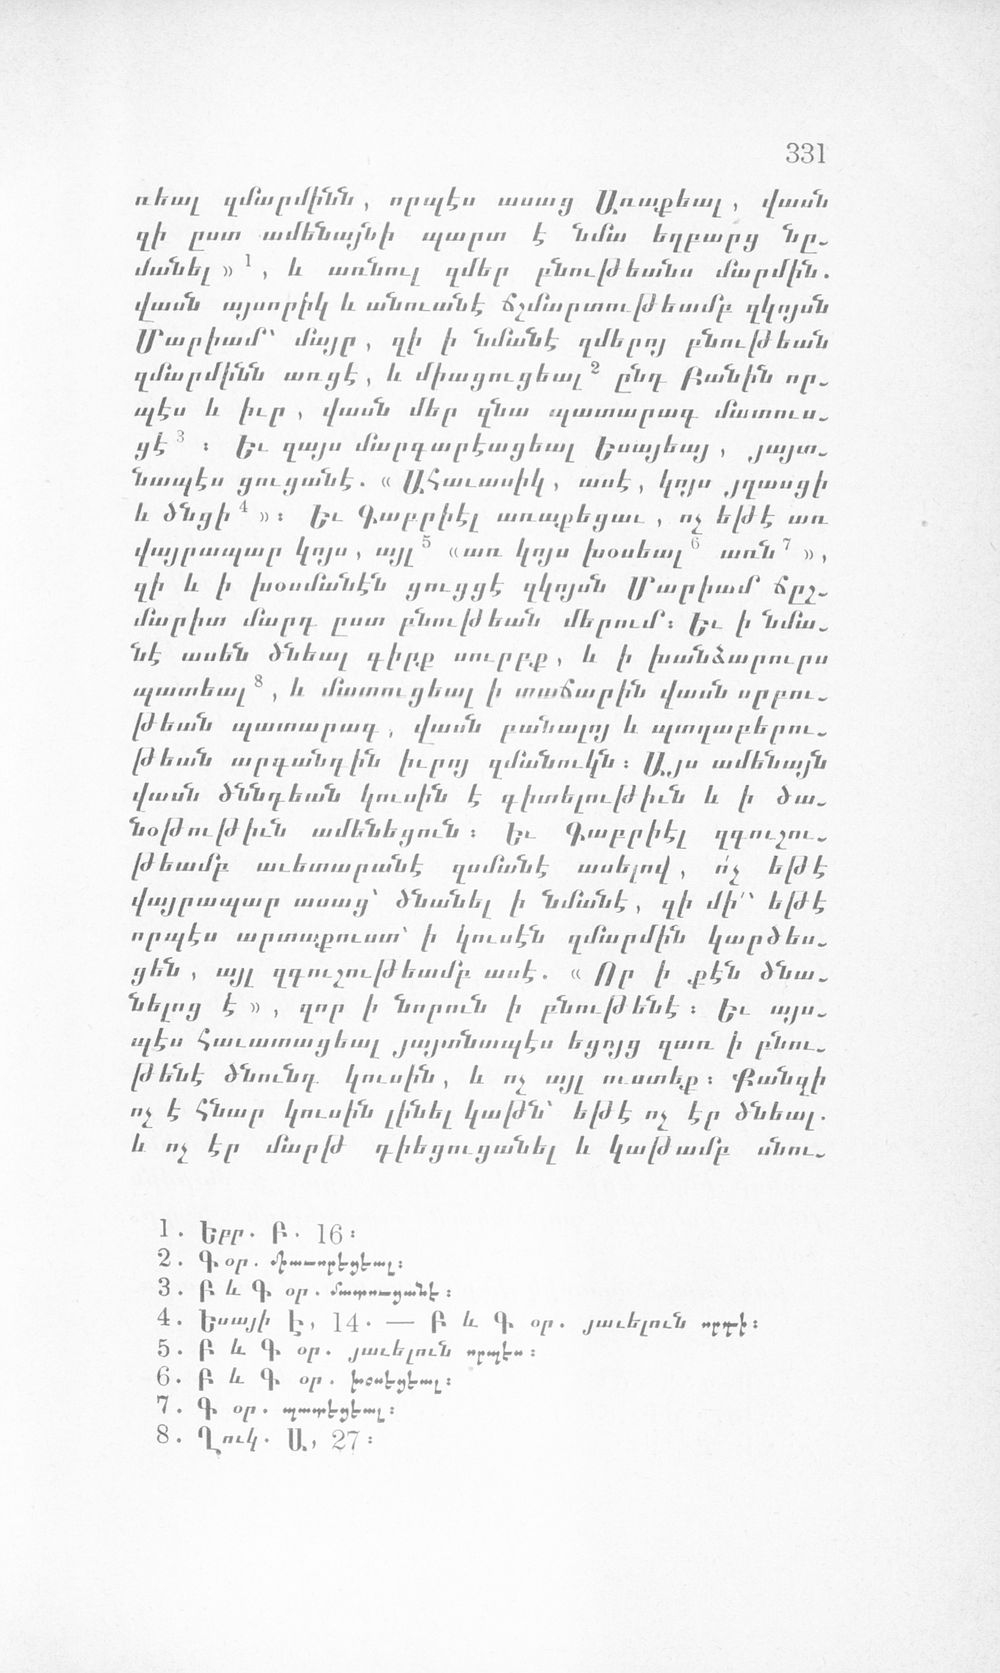 331
ռեալ զմարմինն, որպէս ասաց Առաքեալ, վասն
զի ըստ ամենայնի պարտ է նմա եղբարց նը֊
մանել »1, և առնուլ զմեր բնութեանս մարմին.
վասն այսորիկ և անուանէ ճշմարտութեամբ զկոյսն
Մարիամ՝ մայր, զի ի նմանէ զմերոյ բնութեան
զմարմինն առցէ, և միացուցեալ2 ընդ Բանին որ֊
պէս և իւր, վասն մեր զնա պատարագ մատուս֊
ցէ3 : Եւ զայս մարգարէացեալ Եսայեայ, յայտ֊
նապէս ցուցանէ. « Ահաւասիկ, ասէ, կոյս յղասցի
և ծնցի4 »: Եւ Գաբրիէլ առաքեցաւ, ոչ եթէ առ
վայրապար կոյս, այլ5 «առ կոյս խօսեալ6 առն7 »,
զի և ի խօսմանէն ցուցցէ զկոյսն Մարիամ ճըշ֊
մարիտ մարդ ըստ բնութեան մերում: Եւ ի նմա֊
նէ ասեն ծնեալ գիրք սուրբք, և ի խանձարուրս
պատեալ8, և մատուցեալ ի տաճարին վասն սրբու֊
թեան պատարագ, վասն բանալոյ և պտղաբերու֊
թեան արգանդին իւրոյ զմանուկն: Այս ամենայն
վասն ծննդեան կուսին է գիտելութիւն և ի ծա֊
նօթութիւն ամենեցուն: Եւ Գաբրիէլ զգուշու֊
թեամբ աւետարանէ զսմանէ ասելով, ո՛չ եթէ
վայրապար ասաց՝ ծնանել ի նմանէ, զի մի՛՝ եթէ
որպէս արտաքուստ՝ ի կուսէն զմարմին կարծես֊
ցեն, այլ զգուշութեամբ ասէ. « Որ ի քէն ծնա֊
նելոց է », զոր ի նորուն ի բնութենէ: Եւ այս֊
պէս հաւատացեալ յայտնապէս եցոյց զառ ի բնու֊
թենէ ծնունդ կուսին, և ոչ այլ ուստեք: Քանզի
ոչ է հնար կուսին լինել կաթն՝ եթէ ոչ էր ծնեալ.
և ոչ էր մարթ դիեցուցանել և կաթամբ սնու֊
1. Եբր. Բ. 16:
2. Գ օր. միաւորեցեալ:
3. Բ և Գ օր. մատուցանէ:
4. Եսայի Է, 14. — Բ և Գ օր. յաւելուն որդի:
5. Բ և Գ օր. յաւելուն որպէս:
6. Բ և Գ օր. խօսեցեալ:
7. Գ օր. պատեցեալ:
8. Ղուկ. Ա, 27: